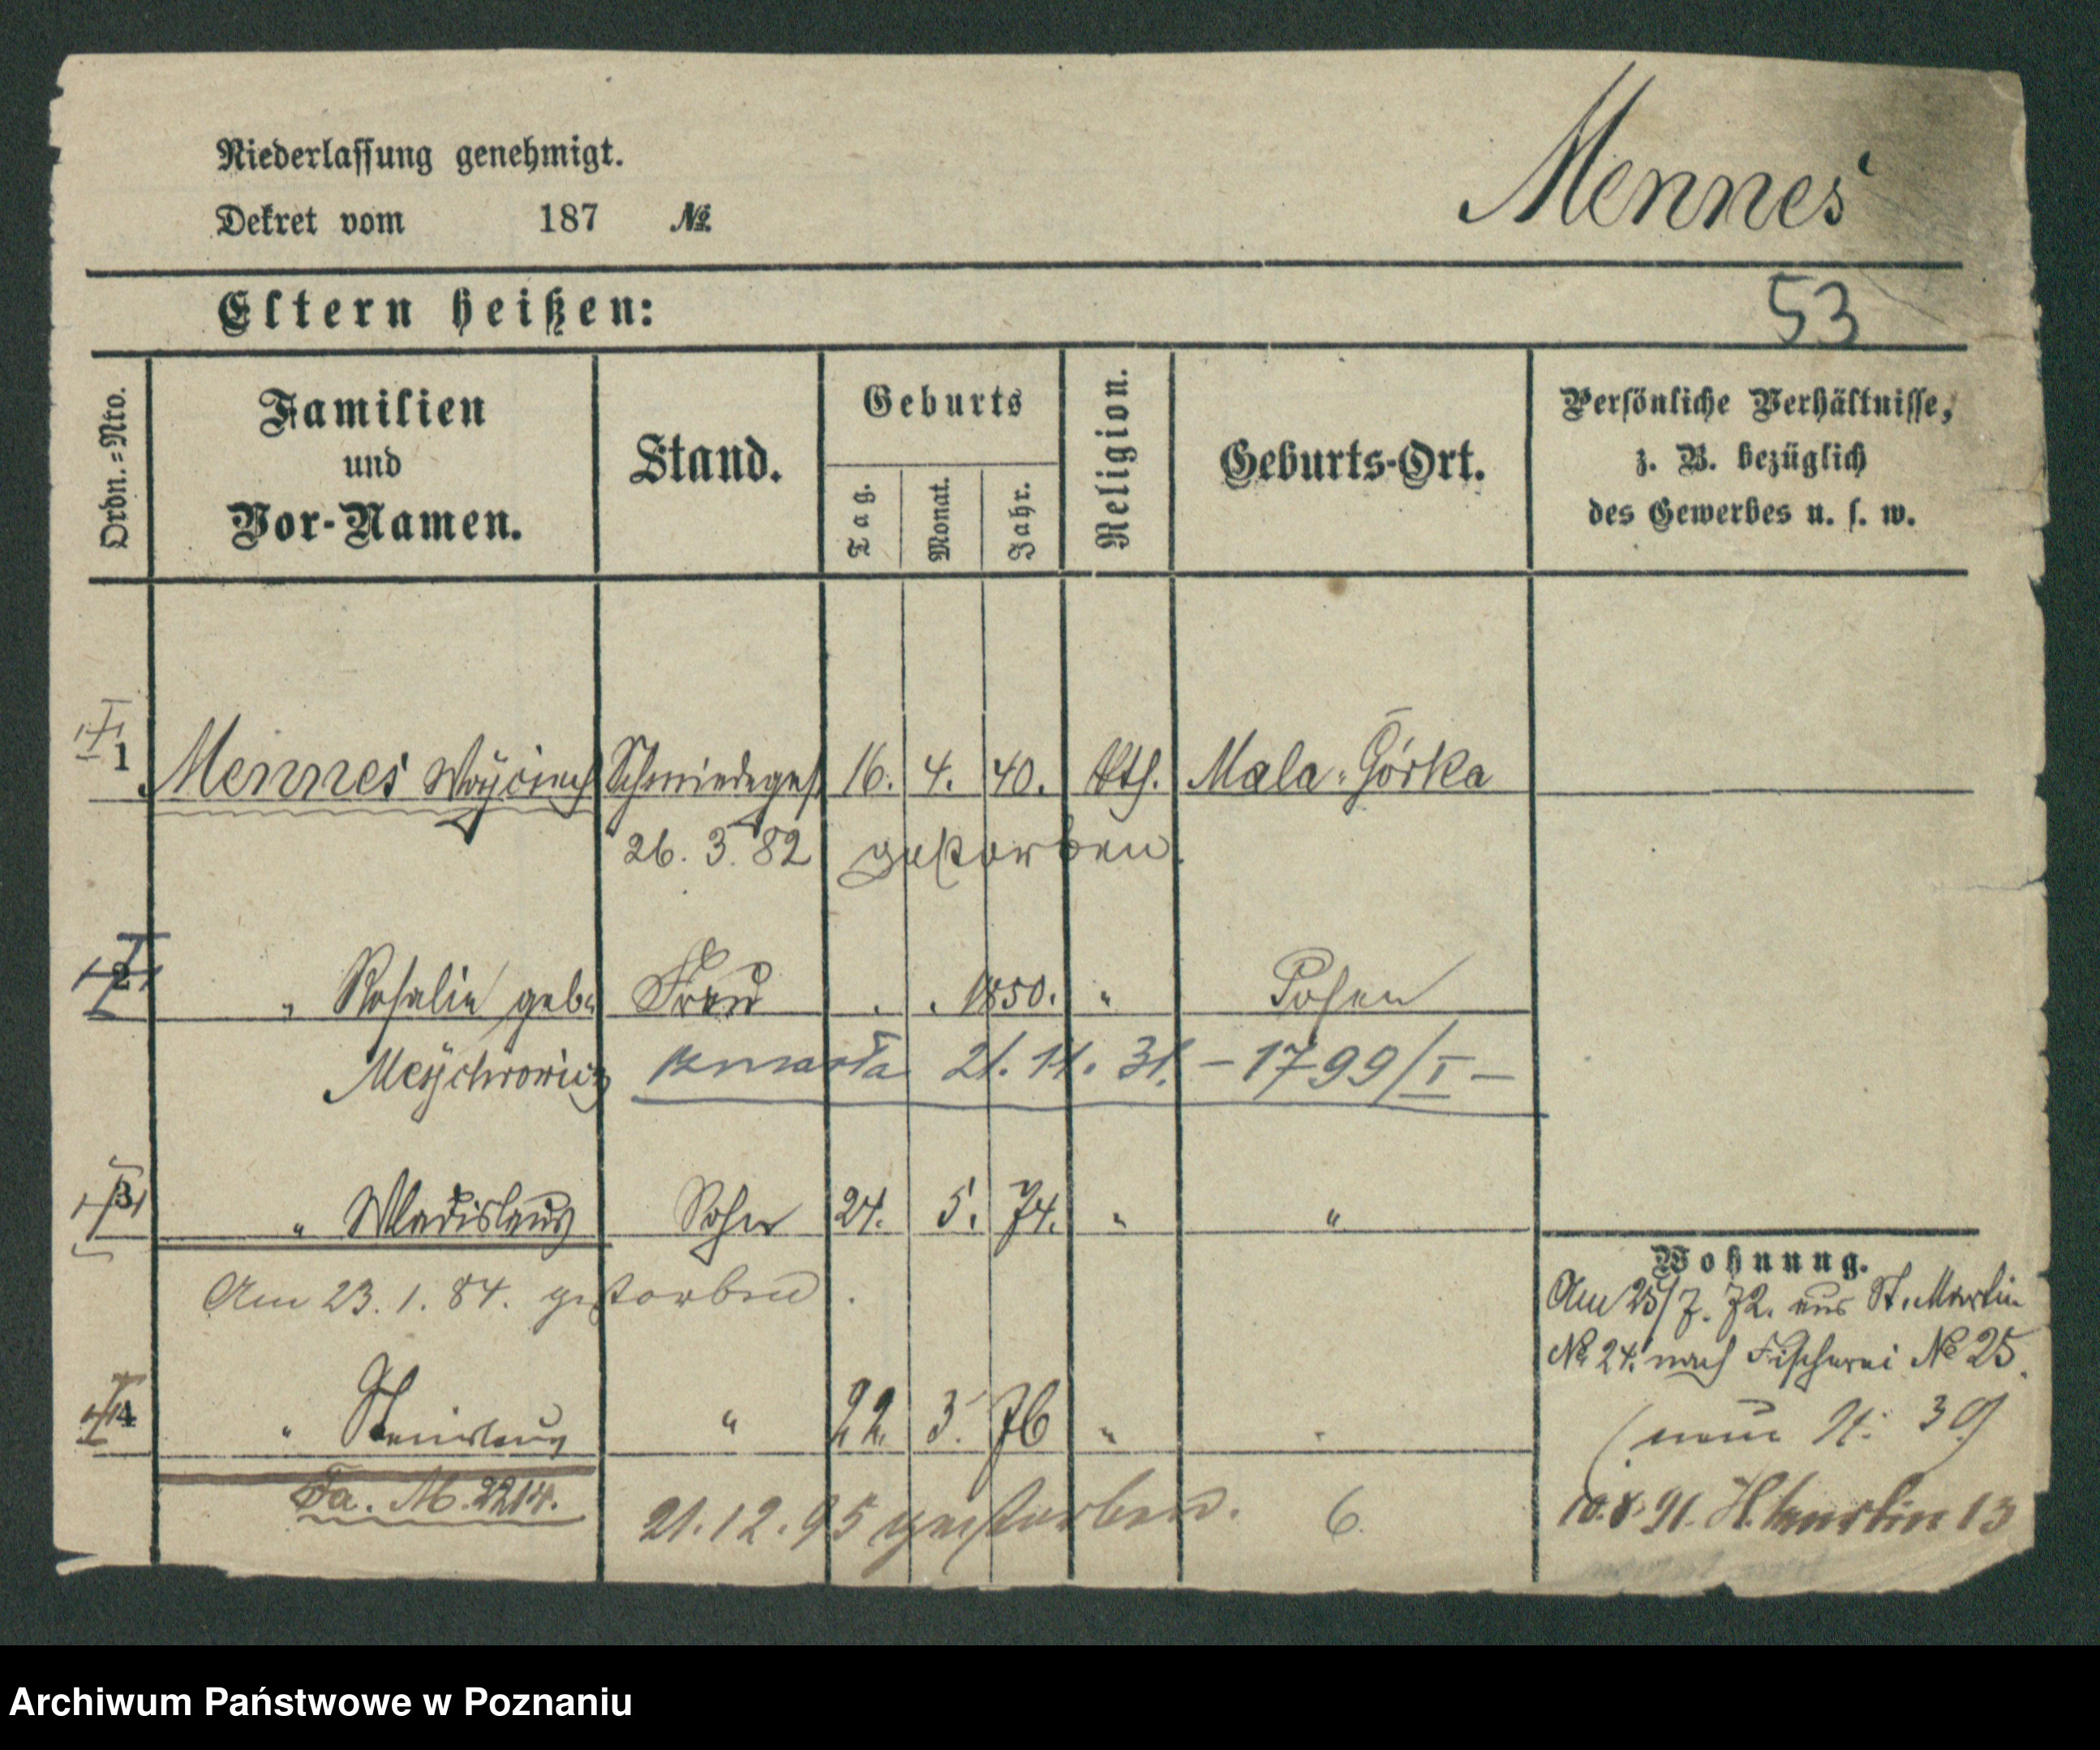 Niederlassung genehmigt.
Mennes
Dekret vom 187 №
Eltern heißen:
53
Ordn.=Nro.
Familien und Vor-Namen.
Stand.
Geburts
Tag.
Monat.
Jahr.
Religion.
Geburts-Ort.
Persönliche Verhältnisse,
z. B. bezüglich
des Gewerbes u. s. w.
1 Mennes Woyciech Schmiedeges 16. 4. 40. kth. Mala-Górka
26. 3. 82 gestorben.
2 " Rosalie geb. Frau . . 1850. " Posen
zmarła 21. 11. 31. – 1799/I –
3 " Wladislaus Sohn 24. 5. 74. " "
Am 23. 1. 84. gestorben.
4 " Stanislaus " 22. 3. 76 " "
Fa. M. 2214.
21.12.95 gestorben. 6.
Wohnung.
Am 25/7. 72. aus St. Martin
№ 24. nach Fischerei № 25.
(neue N: 30)
10.8.91. 13